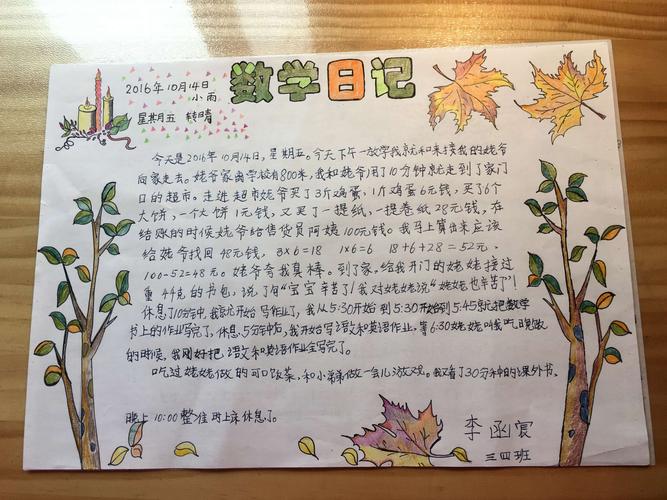 数学日记
2016年10月14日
小雨
星期五 转晴
今天是2016年10月14日,星期五。今天下午一放学我就和来接我的姥爷
向家走去。姥爷家离学校有800米,我和姥爷用了10分钟就走到了家门
口的超市。走进超市姥爷买了3斤鸡蛋,1斤鸡蛋6元钱,买了6个
大饼,一个大饼1元钱,又买了一提纸,一提卷纸28元钱,在
结账的时候姥爷给售货员阿姨100元钱。我马上算出来应该
给姥爷找回48元钱, 3×6=18 1×6=6 18+6+28=52元.
100-52=48元。姥爷夸我真棒。到了家,给我开门的姥姥接过
重4千克的书包,说了句“宝宝辛苦了!我对姥姥说“姥姥也辛苦了”!
休息了10分钟,我就开始写作业了,我从5:30开始到5:30开始到5:45就把数学
书上的作业写完了,休息5分钟后,我开始写语文和英语作业,等6:30姥姥叫我吃晚饭
的时候,我刚好把语文和英语作业全写完了。
吃过姥姥做的可口饭菜,和小弟弟做一会儿游戏。我又看了30分钟的课外书。
晚上10:00整准时上床休息了。
李函
三四班